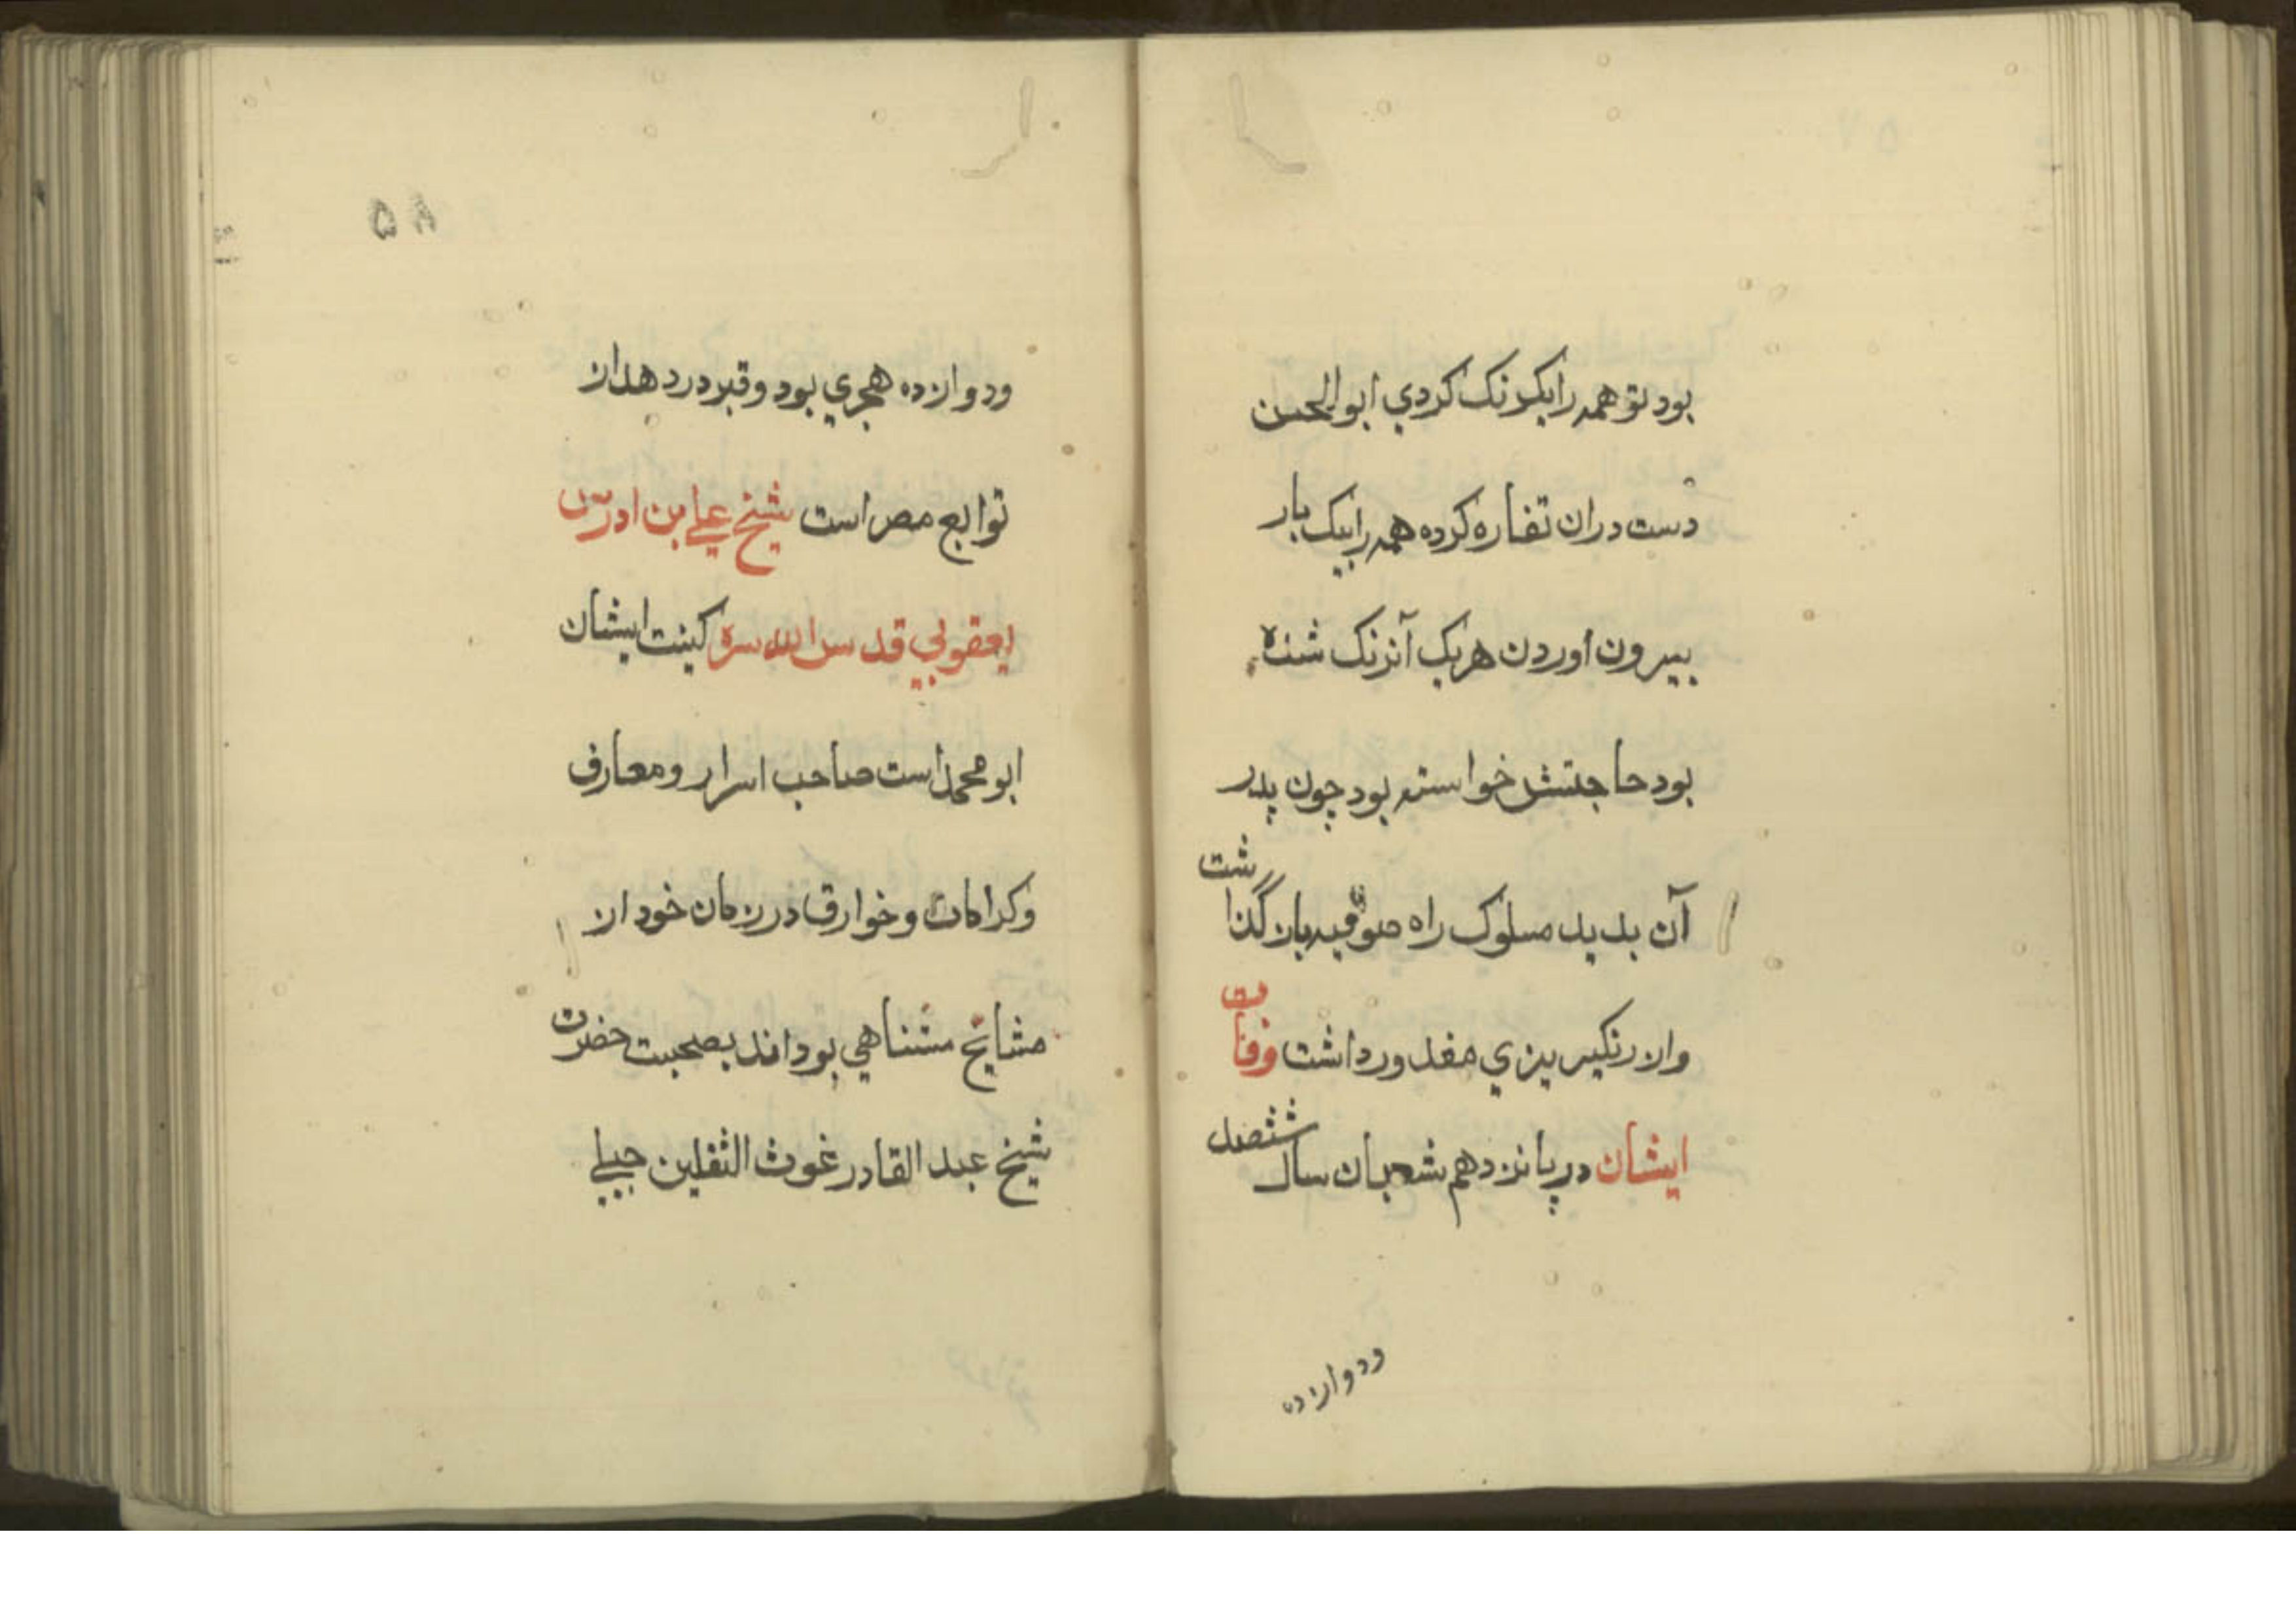 بود تو همه را یکرنک کردي ابوالحسن
دست دران تغاره کرده همه را بیک بار
بیرون اوردن هریک آنرنک شده
بود حاجتش خواسته بود چون پدر
آن بدید مسلوک راه صوفیه بازگذاشت
واز رنکیریزي معذور داشت وفات
ایشان در پانزدهم شعبان سال ششصد
ودوازده
۵۸
ودوازده هجري بود و قبر در دهداز
توابع مصر است شیخ علي بن ادریس
یعقوبي قدس الله سره کینت ایشان
ابو محمد است صاحب اسرار ومعارف
وکرامات وخوارق در زمان خود از
مشایخ متناهي بوداند بصحبت حضرت
شیخ عبد القادر غوث الثقلین جیلي